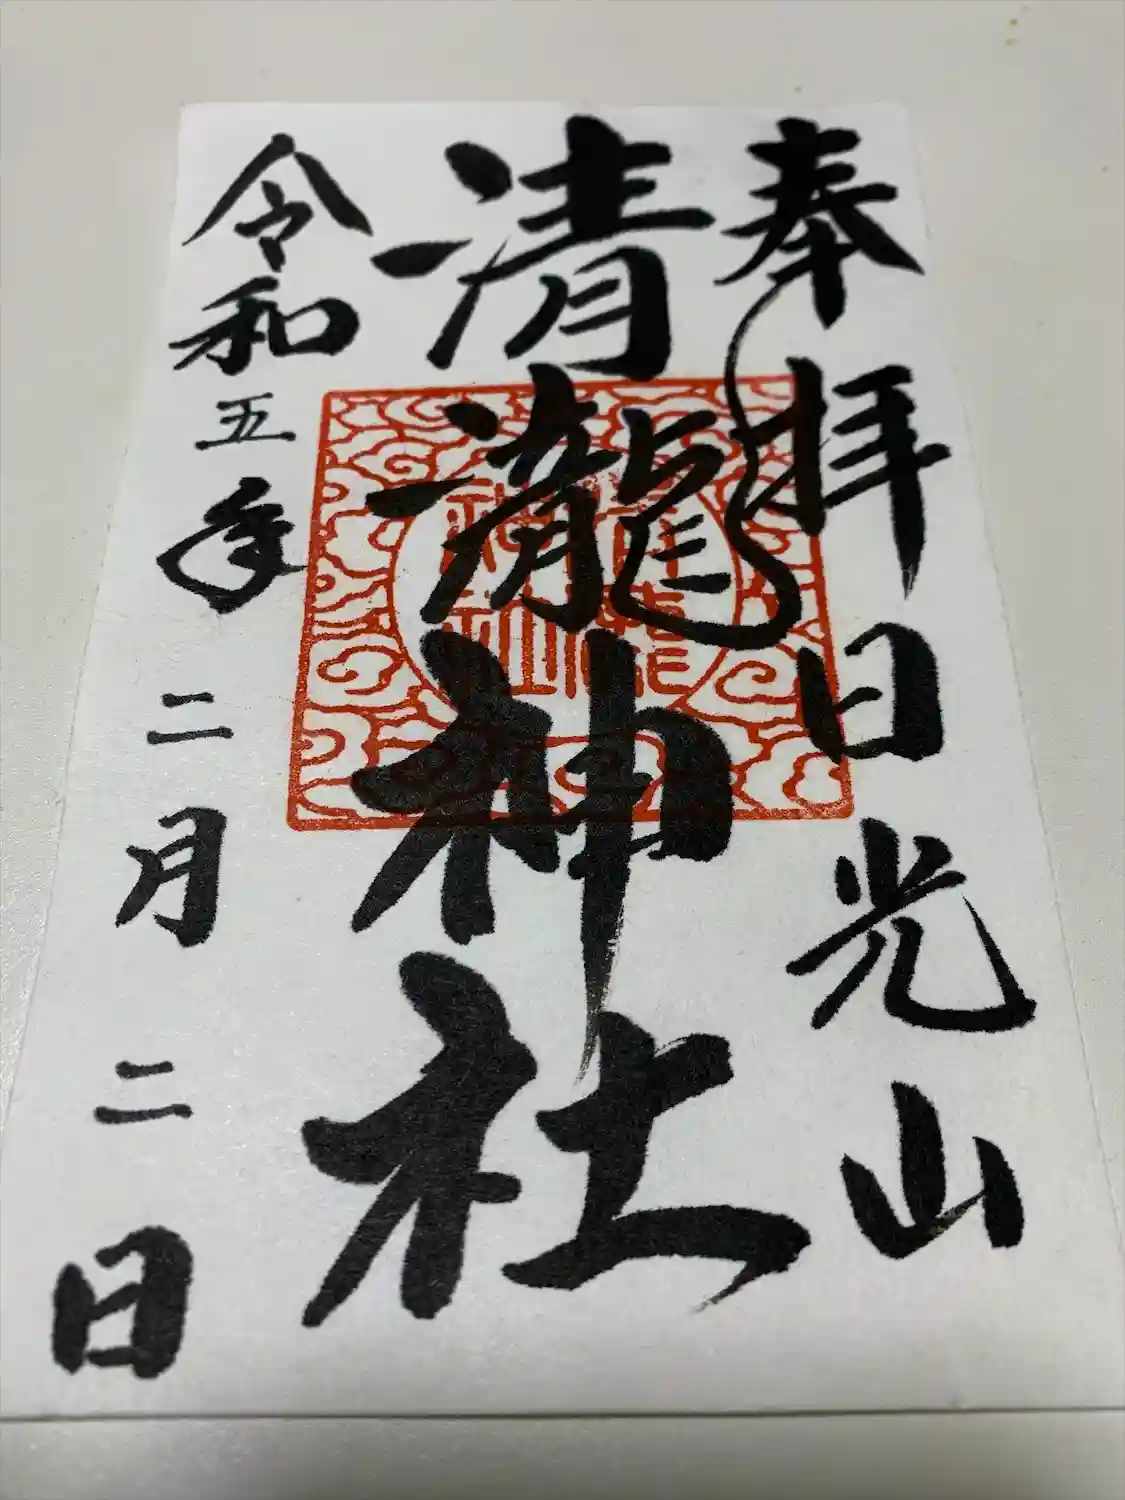 奉拝日光山
清瀧神社
令和五年二月二日